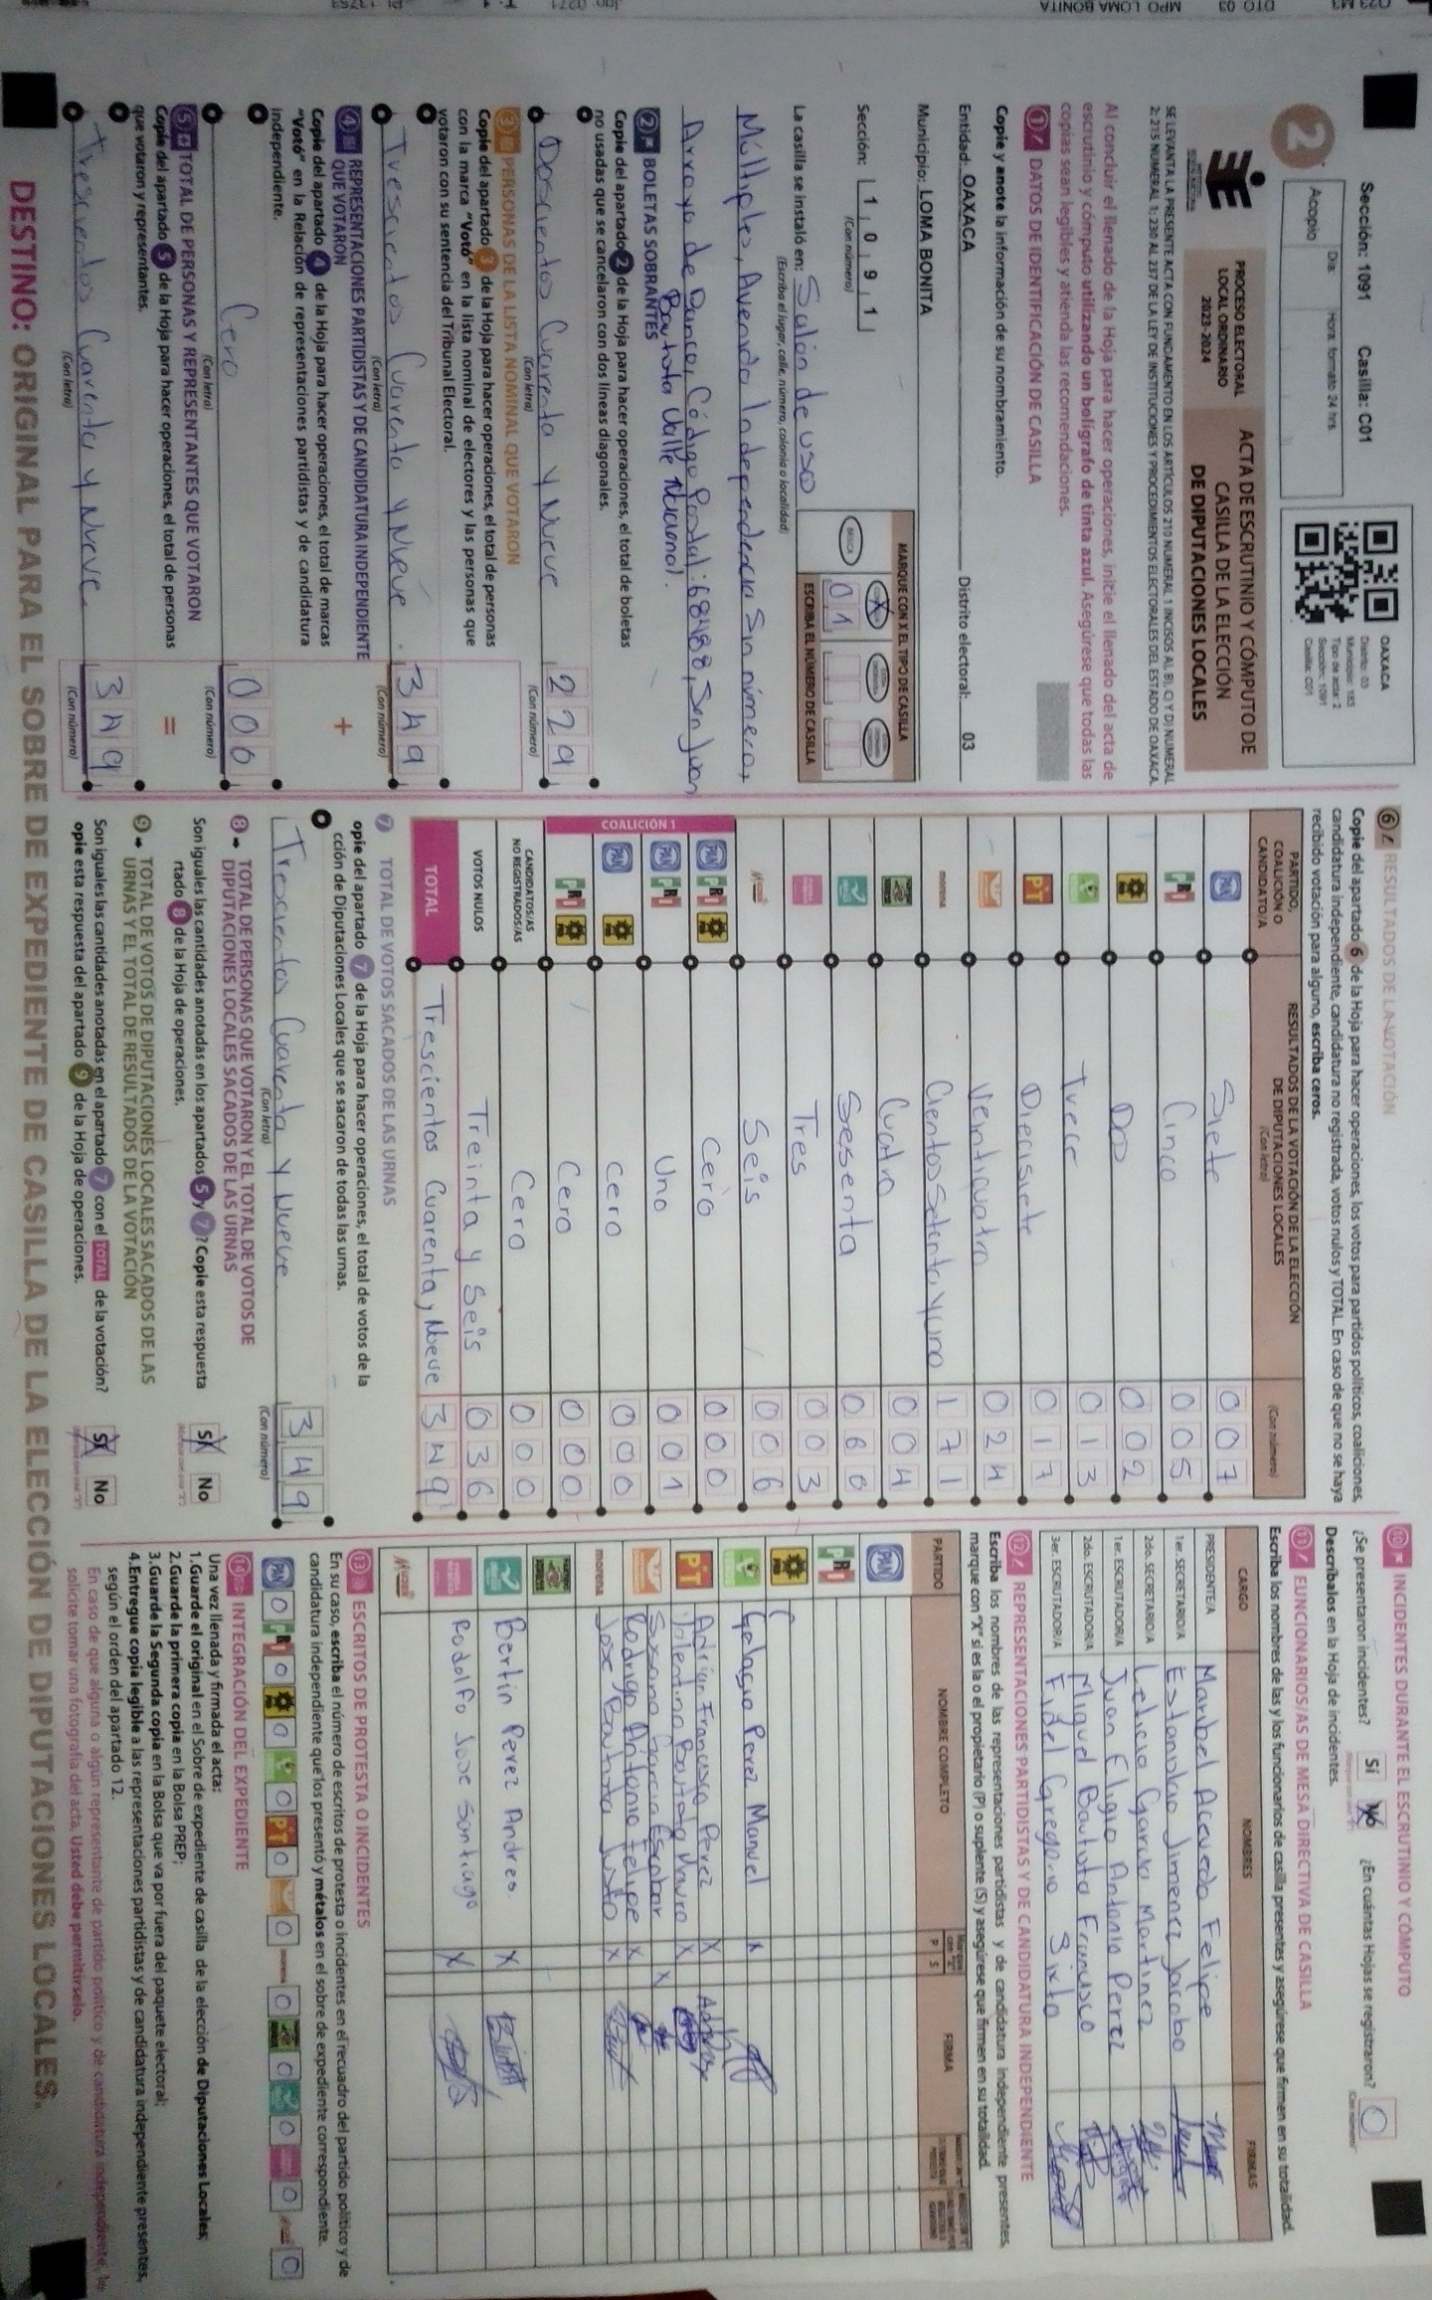 Sección: 1091 Casilla: C01
2
Día: Hora: formato 24 hrs.
Acopio
OAXACA
Distrito: 03
Municipio: 183
Tipo de acta: 2
Sección: 1091
Casilla: C01
PROCESO ELECTORAL
LOCAL ORDINARIO
2023-2024
ACTA DE ESCRUTINIO Y CÓMPUTO DE
CASILLA DE LA ELECCIÓN
DE DIPUTACIONES LOCALES
SE LEVANTA LA PRESENTE ACTA CON FUNDAMENTO EN LOS ARTÍCULOS 210 NUMERAL 1 INCISOS A), B), C) Y D) NUMERAL
2; 215 NUMERAL 1; 230 AL 237 DE LA LEY DE INSTITUCIONES Y PROCEDIMIENTOS ELECTORALES DEL ESTADO DE OAXACA.
Al concluir el llenado de la Hoja para hacer operaciones, inicie el llenado del acta de
escrutinio y cómputo utilizando un bolígrafo de tinta azul. Asegúrese que todas las
copias sean legibles y atienda las recomendaciones.
1 DATOS DE IDENTIFICACIÓN DE CASILLA
Copie y anote la información de su nombramiento.
Entidad: OAXACA Distrito electoral: 03
Municipio: LOMA BONITA
Sección: 1 0 9 1
(Con número)
MARQUE CON X EL TIPO DE CASILLA
BÁSICA X
0 1
ESCRIBA EL NÚMERO DE CASILLA
La casilla se instaló en: Salón de uso
(Escriba el lugar, calle, número, colonia o localidad)
Múltiples, Avenida Independencia Sin número,
Arroyo de Banco, Código Postal: 68488, San Juan
Bautista Valle Nacional.
2 BOLETAS SOBRANTES
Copie del apartado 2 de la Hoja para hacer operaciones, el total de boletas
no usadas que se cancelaron con dos líneas diagonales.
Doscientos Cuarenta y Nueve 2 2 9
(Con letra) (Con número)
3 PERSONAS DE LA LISTA NOMINAL QUE VOTARON
Copie del apartado 3 de la Hoja para hacer operaciones, el total de personas
con la marca "Votó" en la lista nominal de electores y las personas que
votaron con su sentencia del Tribunal Electoral.
Trescientos Cuarenta y Nueve. 3 4 9
(Con letra) (Con número)
4 REPRESENTACIONES PARTIDISTAS Y DE CANDIDATURA INDEPENDIENTE
QUE VOTARON
Copie del apartado 4 de la Hoja para hacer operaciones, el total de marcas
"Votó" en la Relación de representaciones partidistas y de candidatura
independiente.
+
Cero 0 0 0
(Con letra) (Con número)
5 TOTAL DE PERSONAS Y REPRESENTANTES QUE VOTARON
Copie del apartado 5 de la Hoja para hacer operaciones, el total de personas
que votaron y representantes.
=
Trescientos Cuarenta y Nueve. 3 4 9
(Con letra) (Con número)
6 RESULTADOS DE LA VOTACIÓN
Copie del apartado 6 de la Hoja para hacer operaciones, los votos para partidos políticos, coaliciones,
candidatura independiente, candidatura no registrada, votos nulos y TOTAL. En caso de que no se haya
recibido votación para alguno, escriba ceros.
PARTIDO,
COALICIÓN O
CANDIDATO/A
RESULTADOS DE LA VOTACIÓN DE LA ELECCIÓN
DE DIPUTACIONES LOCALES
(Con letra) (Con número)
PAN Siete 0 0 7
PRI Cinco 0 0 5
PRD Dos 0 0 2
Trece 0 1 3
PT Diecisiete 0 1 7
Veintiquatro 0 2 4
morena Ciento Setenta y uno 1 7 1
Cuatro 0 0 4
Sesenta 0 6 0
Tres 0 0 3
Seis 0 0 6
COALICIÓN 1
PAN PRI PRD Cero 0 0 0
PAN PRI Uno 0 0 1
PAN PRD Cero 0 0 0
PRI PRD Cero 0 0 0
CANDIDATOS/AS
NO REGISTRADOS/AS Cero 0 0 0
VOTOS NULOS Treinta y Seis 0 3 6
TOTAL Trescientos Cuarenta y Nueve 3 4 9
7 TOTAL DE VOTOS SACADOS DE LAS URNAS
opie del apartado 7 de la Hoja para hacer operaciones, el total de votos de la
cción de Diputaciones Locales que se sacaron de todas las urnas.
Trescientos Cuarenta y Nueve 3 4 9
(Con letra) (Con número)
8 TOTAL DE PERSONAS QUE VOTARON Y EL TOTAL DE VOTOS DE
DIPUTACIONES LOCALES SACADOS DE LAS URNAS
Son iguales las cantidades anotadas en los apartados 5 y 7? Copie esta respuesta
rtado 8 de la Hoja de operaciones.
Sí X No
9 TOTAL DE VOTOS DE DIPUTACIONES LOCALES SACADOS DE LAS
URNAS Y EL TOTAL DE RESULTADOS DE LA VOTACIÓN
Son iguales las cantidades anotadas en el apartado 7 con el TOTAL de la votación?
opie esta respuesta del apartado 9 de la Hoja de operaciones.
Sí X No
10 INCIDENTES DURANTE EL ESCRUTINIO Y CÓMPUTO
¿Se presentaron incidentes? Sí No X ¿En cuántas Hojas se registraron? 0
Descríbalos en la Hoja de incidentes.
11 FUNCIONARIOS/AS DE MESA DIRECTIVA DE CASILLA
Escriba los nombres de las y los funcionarios de casilla presentes y asegúrese que firmen en su totalidad.
CARGO NOMBRES FIRMAS
PRESIDENTE/A Maribel Acevedo Felipe
1er. SECRETARIO/A Estanislao Jimenez Jacobo
2do. SECRETARIO/A Leticia Garcia Martinez
1er. ESCRUTADOR/A Juan Eligio Antonio Perez
2do. ESCRUTADOR/A Miguel Bautista Francisco
3er. ESCRUTADOR/A Fidel Gregorio Sixto
12 REPRESENTACIONES PARTIDISTAS Y DE CANDIDATURA INDEPENDIENTE
Escriba los nombres de las representaciones partidistas y de candidatura independiente presentes,
marque con "X" si es la o el propietario (P) o suplente (S) y asegúrese que firmen en su totalidad.
PARTIDO NOMBRE COMPLETO P S FIRMA
PAN
PRI
PRD
Gelacio Perez Manuel X
PT Adrian Francisco Perez X
Valentina Bautista Mauro X
Susana Garcia Escobar X
Rodrigo Antonio Felipe X
morena Jose Bautista Sixto X
Bertin Perez Andres X
Rodolfo Jose Santiago X
13 ESCRITOS DE PROTESTA O INCIDENTES
En su caso, escriba el número de escritos de protesta o incidentes en el recuadro del partido político y de
candidatura independiente que los presentó y métalos en el sobre de expediente correspondiente.
PAN 0 PRI 0 PRD 0 0 PT 0 0 morena 0 0 0 0 0
14 INTEGRACIÓN DEL EXPEDIENTE
Una vez llenada y firmada el acta:
1.Guarde el original en el Sobre de expediente de casilla de la elección de Diputaciones Locales;
2.Guarde la primera copia en la Bolsa PREP;
3.Guarde la Segunda copia en la Bolsa que va por fuera del paquete electoral;
4.Entregue copia legible a las representaciones partidistas y de candidatura independiente presentes,
según el orden del apartado 12.
En caso de que alguna o algún representante de partido político y de candidatura independiente, lo
solicite tomar una fotografía del acta. Usted debe permitírselo.
DESTINO: ORIGINAL PARA EL SOBRE DE EXPEDIENTE DE CASILLA DE LA ELECCIÓN DE DIPUTACIONES LOCALES.
DTO 03 MPO LOMA BONITA